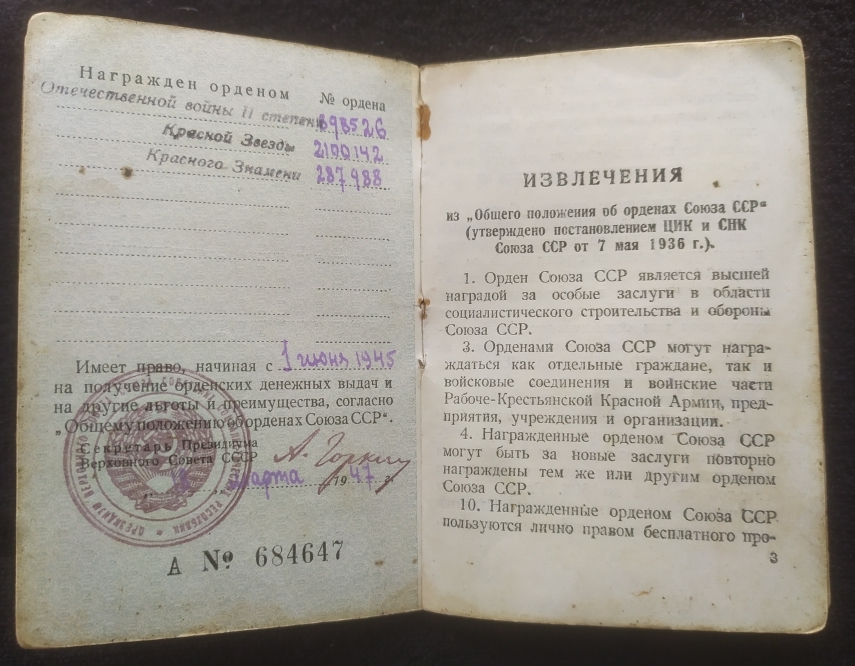 Награжден орденом
№ ордена
Отечественной войны II степени
898526
Красной Звезды
2100142
Красного Знамени
287988
Имеет право, начиная с 1 июня 1945
на получение орденских денежных выдач и
на другие льготы и преимущества, согласно
„Общему положению об орденах Союза ССР“.
Секретарь Президиума
Верховного Совета СССР
А. Горкин
марта 1947 г.
А № 684647
ИЗВЛЕЧЕНИЯ
из „Общего положения об орденах Союза ССР“
(утверждено постановлением ЦИК и СНК
Союза ССР от 7 мая 1936 г.).
1. Орден Союза ССР является высшей
наградой за особые заслуги в области
социалистического строительства и обороны
Союза ССР.
3. Орденами Союза ССР могут награ-
ждаться как отдельные граждане, так и
войсковые соединения и воинские части
Рабоче-Крестьянской Красной Армии, пред-
приятия, учреждения и организации.
4. Награжденные орденом Союза ССР
могут быть за новые заслуги повторно
награждены тем же или другим орденом
Союза ССР.
10. Награжденные орденом Союза ССР
пользуются лично правом бесплатного про-
3